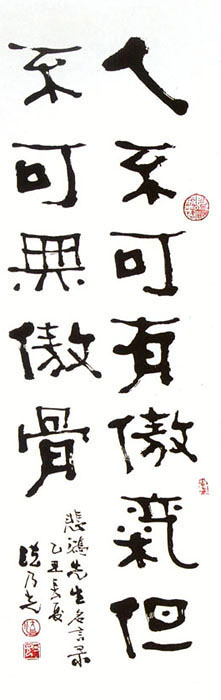 人不可有傲氣但
不可無傲骨
悲鴻先生名言录
乙丑長夏